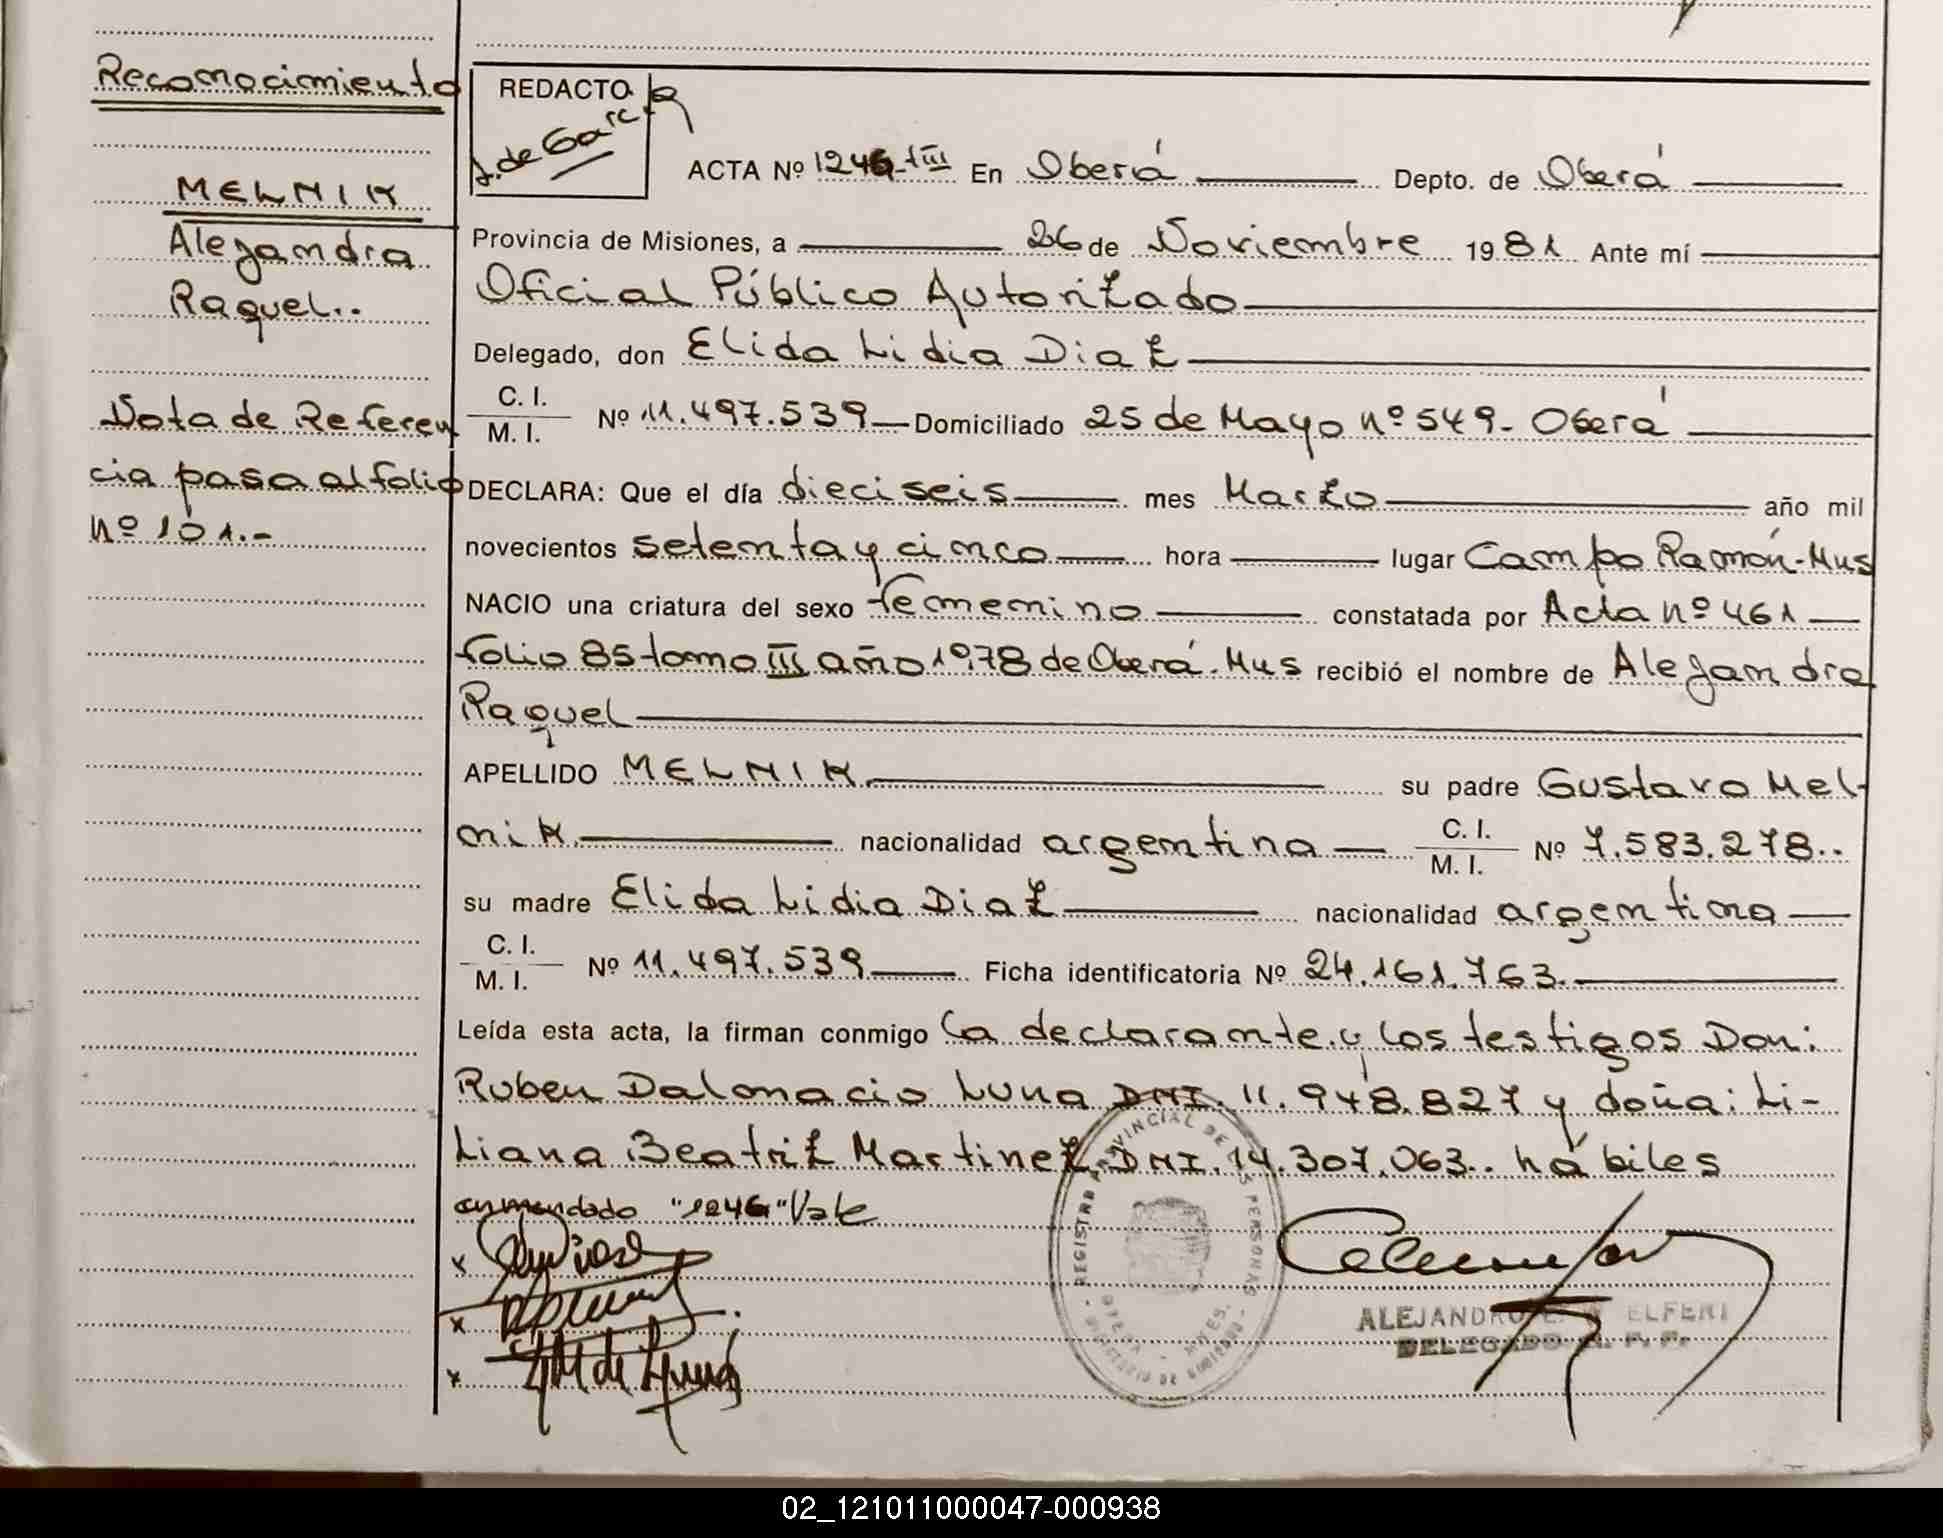 Reconocimiento
MELNIK
Alejandra
Raquel..
Nota de Referen
cia pasa al folio
nº 101.-
REDACTO
J. de Garcia
ACTA Nº 1246-tIII En Oberá Depto. de Oberá
Provincia de Misiones, a 26 de Noviembre 1981 Ante mí
Oficial Público Autorizado
Delegado, don Elida Lidia Diaz
C. I.
M. I. Nº 11.497.539 Domiciliado 25 de Mayo nº 549- Oberá
DECLARA: Que el día dieciseis mes Marzo año mil
novecientos setenta y cinco hora lugar Campo Ramón-Mns
NACIO una criatura del sexo femenino constatada por Acta nº 461
folio 85 tomo III año 1978 de Oberá-Mns recibió el nombre de Alejandra
Raquel
APELLIDO MELNIK su padre Gustavo Mel-
nik nacionalidad argentina C. I.
M. I. Nº 7.583.278..
su madre Elida Lidia Diaz nacionalidad argentina
C. I.
M. I. Nº 11.497.539 Ficha identificatoria Nº 24.161.763.
Leída esta acta, la firman conmigo la declarante y los testigos Don:
Ruben Dalmacio Luna DNI. 11.948.827 y doña: Li-
liana Beatriz Martinez DNI. 14.307.063.. hábiles
enmendado "1246" Vale
REGISTRO PROVINCIAL DE LAS PERSONAS
ALEJANDRO
DELEGADO R. P. P.
02_121011000047-000938